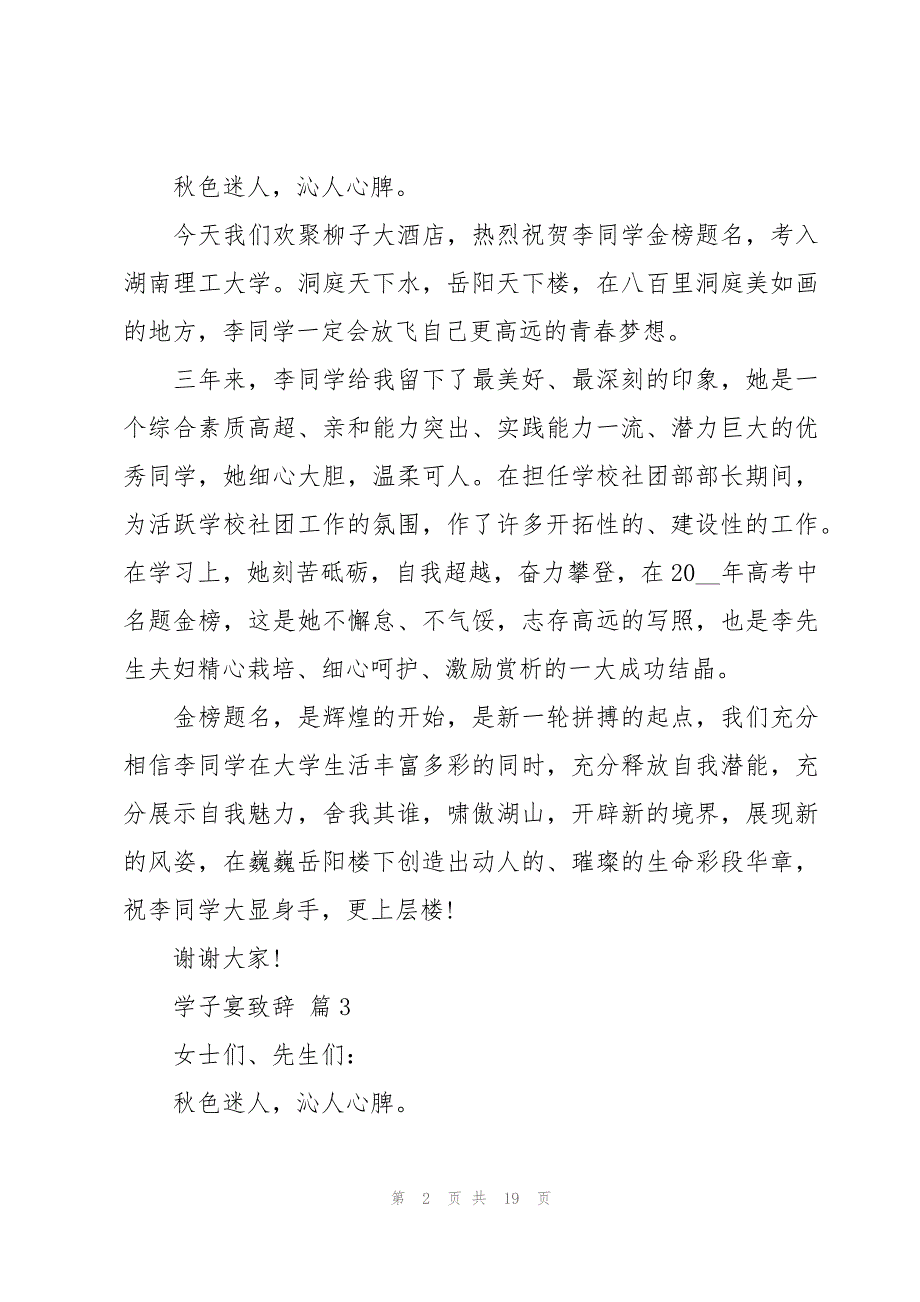 秋色迷人，沁人心脾。
今天我们欢聚柳子大酒店，热烈祝贺李同学金榜题名，考入
湖南理工大学。洞庭天下水，岳阳天下楼，在八百里洞庭美如画
的地方，李同学一定会放飞自己更高远的青春梦想。
三年来，李同学给我留下了最美好、最深刻的印象，她是一
个综合素质高超、亲和能力突出、实践能力一流、潜力巨大的优
秀同学，她细心大胆，温柔可人。在担任学校社团部部长期间，
为活跃学校社团工作的氛围，作了许多开拓性的、建设性的工作。
在学习上，她刻苦砥砺，自我超越，奋力攀登，在 20__年高考中
名题金榜，这是她不懈怠、不气馁，志存高远的写照，也是李先
生夫妇精心栽培、细心呵护、激励赏析的一大成功结晶。
金榜题名，是辉煌的开始，是新一轮拼搏的起点，我们充分
相信李同学在大学生活丰富多彩的同时，充分释放自我潜能，充
分展示自我魅力，舍我其谁，啸傲湖山，开辟新的境界，展现新
的风姿，在巍巍岳阳楼下创造出动人的、璀璨的生命彩段华章，
祝李同学大显身手，更上层楼!
谢谢大家!
学子宴致辞 篇 3
女士们、先生们：
秋色迷人，沁人心脾。
第 2 页 共 19 页